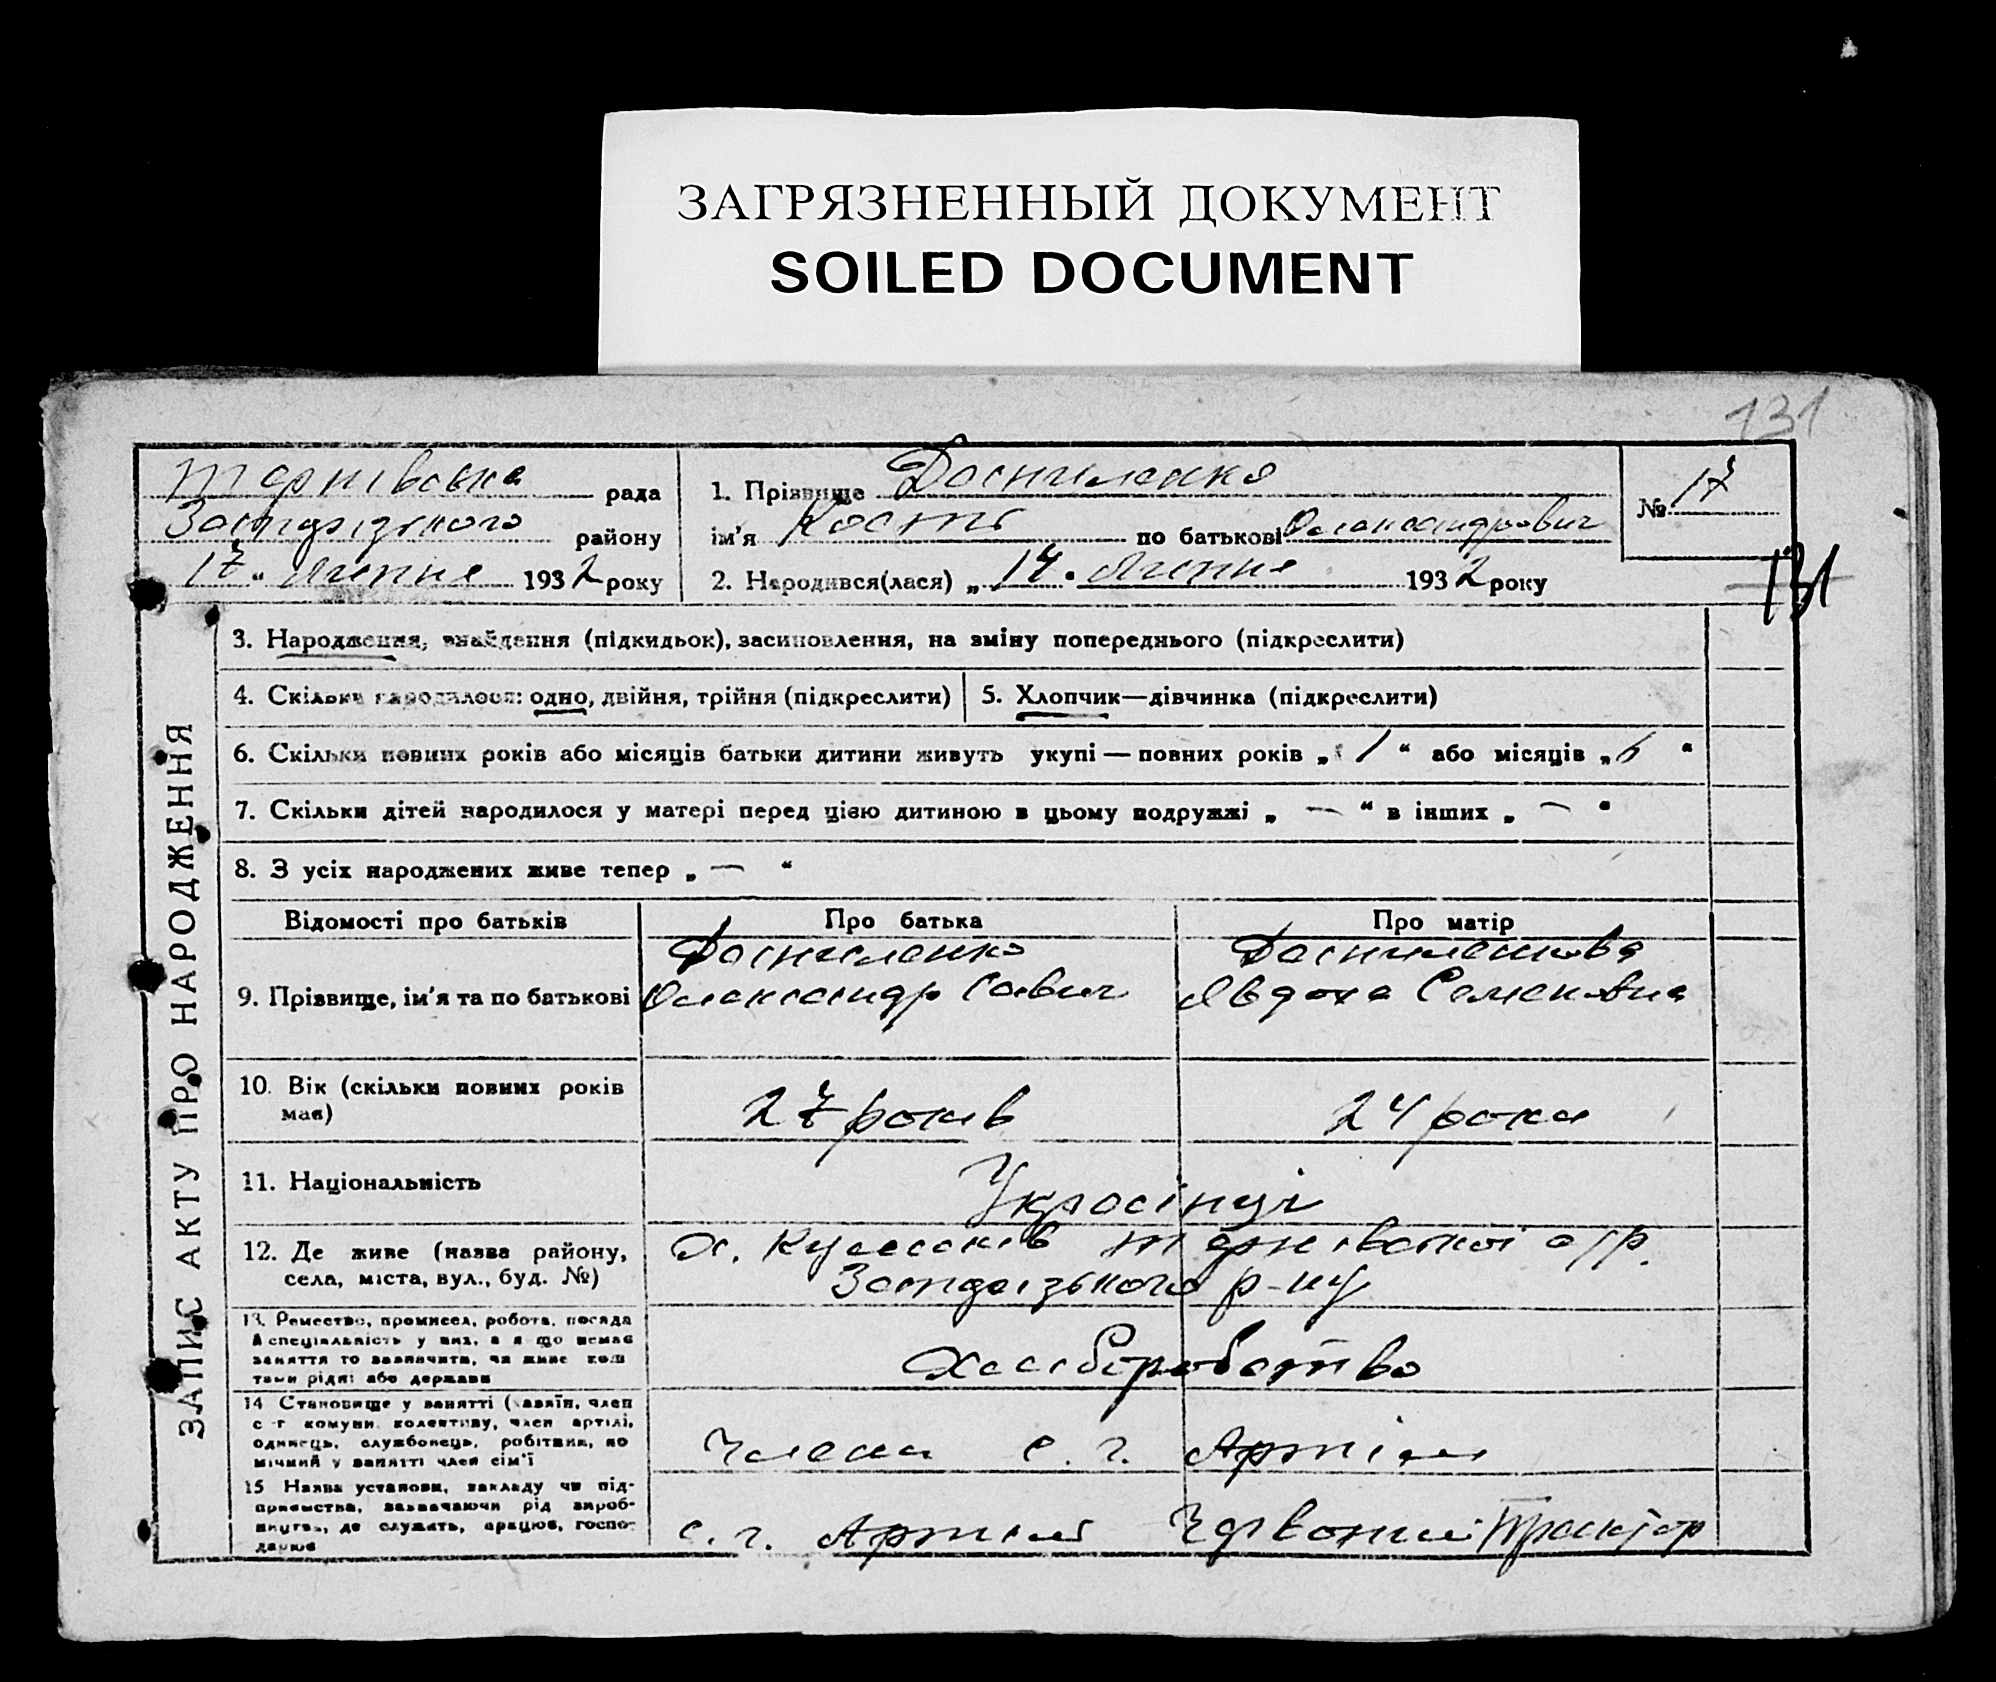 ЗАГРЯЗНЕННЫЙ ДОКУМЕНТ
SOILED DOCUMENT
131
Тернівська рада
района
17 " Липня 1932 року
1. Прізвище Даниленко
ім'я Кость по батькові Олександрович
2. Народився(лася) „ 14 " Липня 1932 року
№ 17
131
ЗАПИС АКТУ ПРО НАРОДЖЕННЯ
3. Народження, знайдення (підкидьок), засиновлення, на зміну попереднього (підкреслити)
4. Скільки народилося: одно, двійня, трійня (підкреслити)
5. Хлопчик—дівчинка (підкреслити)
6. Скільки повних років або місяців батьки дитини живуть укупі — повних років „ 1 “ або місяців „ 6 “
7. Скільки дітей народилося у матері перед цією дитиною в цьому подружжі „ — “ в інших „ — “
8. З усіх народжених живе тепер „ — “
Відомості про батьків
Про батька
Про матір
9. Прізвище, ім'я та по батькові
Даниленко
Олександр Савич
Даниленкова
Явдоха Семеновна
10. Вік (скільки повних років має)
27 років
24 роки
11. Національність
Українці
12. Де живе (назва району, села, міста, вул., буд. №)
х. Тернівської с/р.
р-ну
13. Ремество, промисел, робота, посада й спеціальність у них, а якщо немає
заняття то зазначити, чи живе коштами рідні або держави
Хліборобство
14 Становище у занятті (хазяїн, член
с-г комуни, колективу, член артілі,
одинець, службовець, робітник, помічний у занятті член сім'ї
Члени с. г. Артілі
15 Назва установи, закладу чи підприємства, зазначаючи рід виробництва, де служить, працює, господарює
с. г. Артіль Червоний Трактор